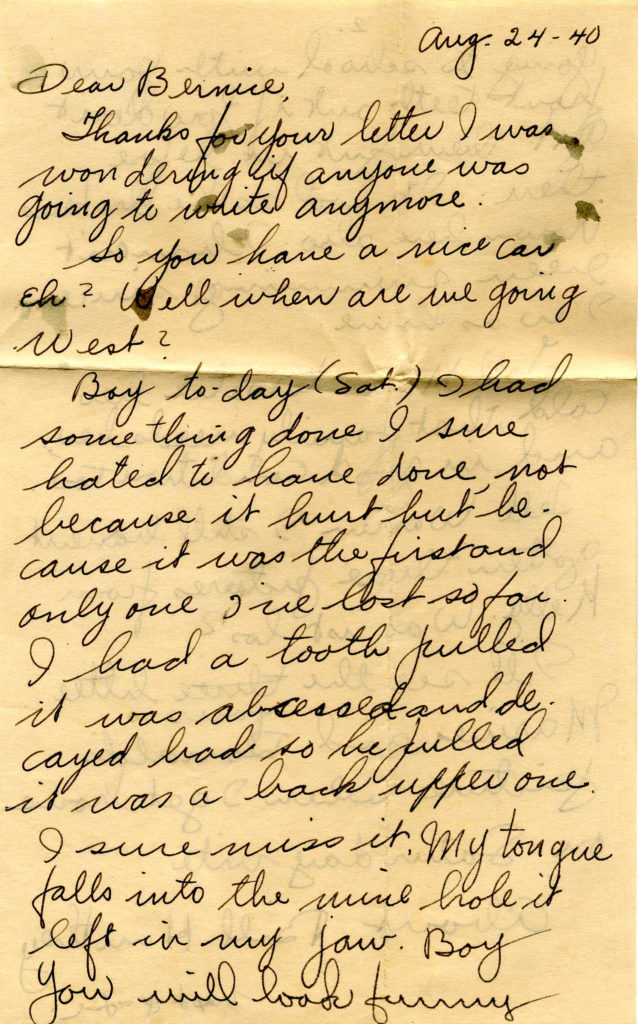 Aug. 24-40
Dear Bernice,
Thanks for your letter I was
wondering if anyone was
going to write anymore.
So you have a nice car
eh? Well when are we going
West?
Boy to-day (Sat.) I had
something done I sure
hated to have done, not
because it hurt but be-
cause it was the first and
only one I've lost so far.
I had a tooth pulled
it was abscessed and de-
cayed bad so he pulled
it was a back upper one.
I sure miss it. My tongue
falls into the mine hole it
left in my jaw. Boy
You will look funny